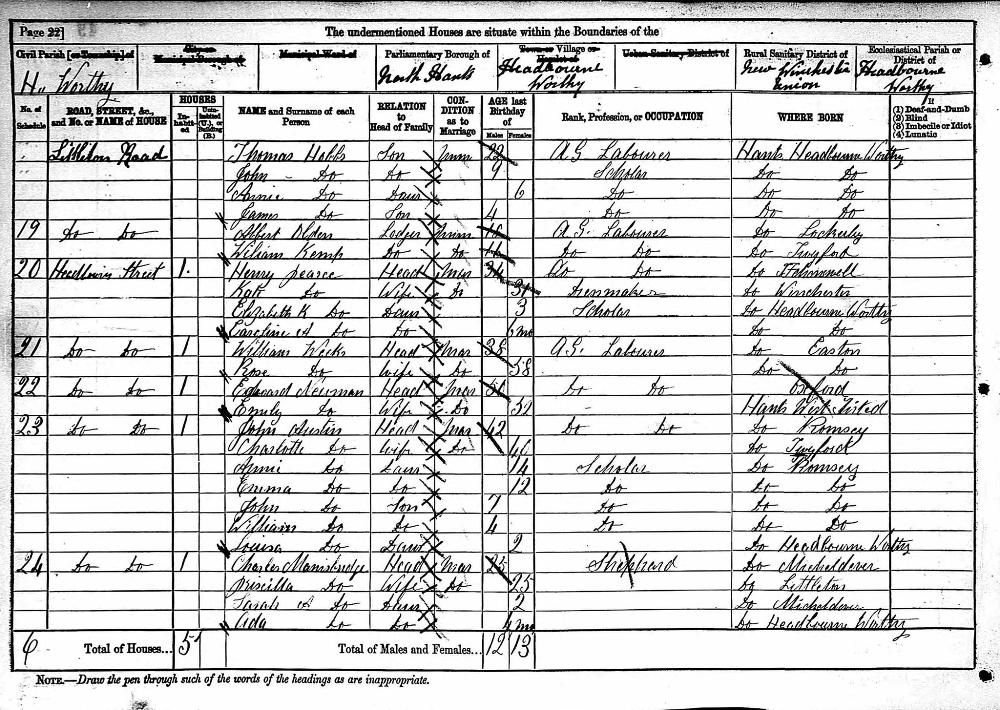 Page 22]
The undermentioned Houses are situate within the Boundaries of the
Civil Parish [or Township] of
City or Municipal Borough of
Municipal Ward of
Parliamentary Borough of
Town or Village or Hamlet of
Urban Sanitary District of
Rural Sanitary District of
Ecclesiastical Parish or District of
H. Worthy North Hants Headbourne Worthy New Winchester Union Headbourne Worthy
No. of Schedule
ROAD, STREET, &c., and No. or NAME of HOUSE
HOUSES
Inhabited
Uninhabited (U.), or Building (B.)
NAME and Surname of each Person
RELATION to Head of Family
CONDITION as to Marriage
AGE last Birthday of
Males Females
Rank, Profession, or OCCUPATION
WHERE BORN
If
(1) Deaf-and-Dumb
(2) Blind
(3) Imbecile or Idiot
(4) Lunatic
Littleton Road Thomas Hobbs Son Unm 22 AG Labourer Hants Headbourne Worthy
John Do Do 9 Scholar Do Do
Annie Do Daur 6 Do Do Do
James Do Son 4 Do Do Do
19 Do Do Albert Olden Lodger Unm AG. Labourer Do Lockerly
William Kemp Do Do Do Do Do Twyford
20 Headbourn Street 1 Henry Pearce Head Mar 34 Do Do Do
Kate Do Wife Do 31 Do Winchester
Elizabeth K Do Daur 3 Scholar Do Headbourne Worthy
Caroline A Do Do 6 mo Do Do
21 Do Do 1 William Weeks Head Mar 38 AG. Labourer Do Easton
Rose Do Wife Do 58 Do Do
22 Do Do 1 Edward Newman Head Mar Do Do Oxford
Emily Do Wife Do Hants West Tisted
23 Do Do 1 John Austin Head Mar 42 Do Do Do Romsey
Charlotte Do Wife Do 40 Do Twyford
Annie Do Daur 14 Scholar Do Romsey
Emma Do Do 12 Do Do Do
John Do Son 7 Do Do Do
William Do Do 4 Do Do Do
Louisa Do Daur 2 Do Headbourne Worthy
24 Do Do 1 Charles Mansbridge Head Mar 25 Shepherd Do Micheldever
Priscilla Do Wife Do 25 Do Littleton
Sarah A Do Daur 2 Do Micheldever
Ada Do Do 4 mo Do Headbourne Worthy
6 Total of Houses... 5 Total of Males and Females... 12 13
NOTE.—Draw the pen through such of the words of the headings as are inappropriate.